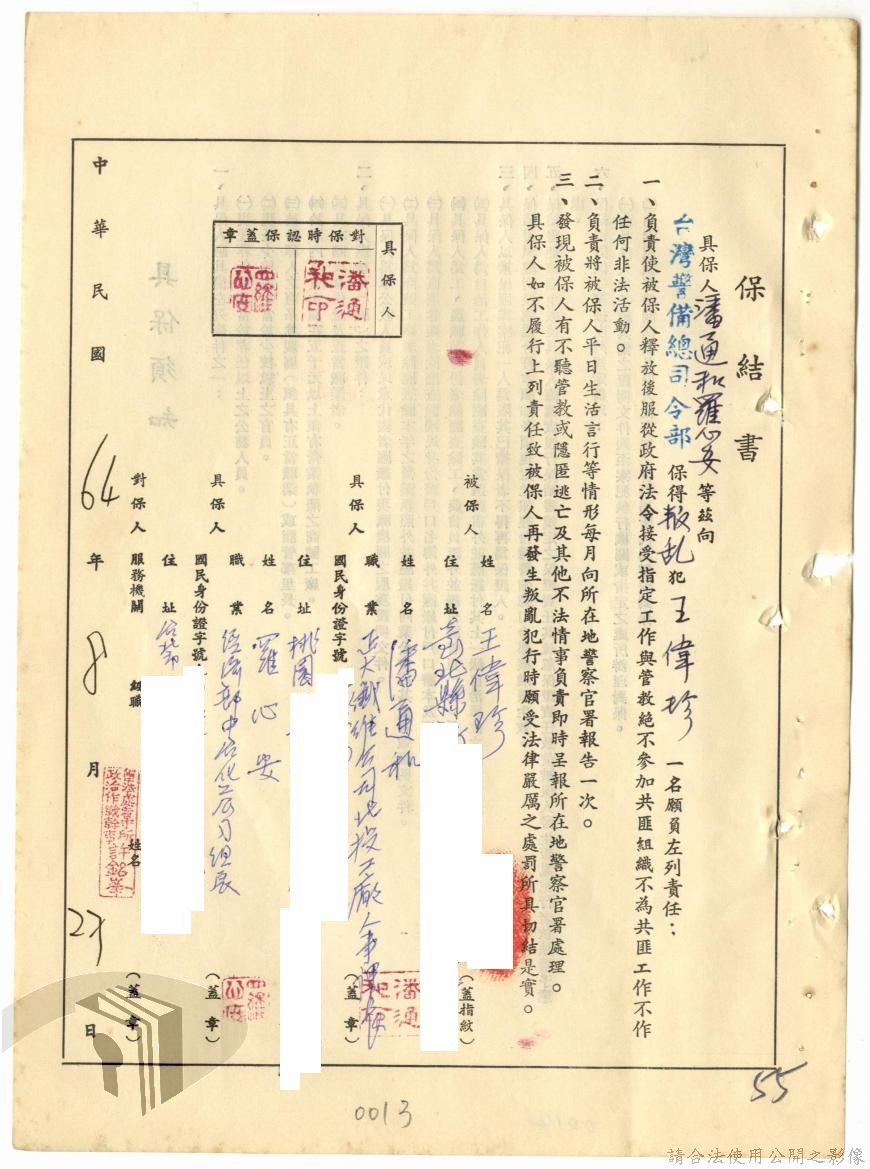 保結書
具保人潘通和羅心安等茲向
台灣警備總司令部保得叛乱犯王偉珍一名願負左列責任：
一、負責使被保人釋放後服從政府法令接受指定工作與管教絕不參加共匪組織不為共匪工作不作
任何非法活動。
二、負責將被保人平日生活言行等情形每月向所在地警察官署報告一次。
三、發現被保人有不聽管教或隱匿逃亡及其他不法情事負責即時呈報所在地警察官署處理。
具保人如不履行上列責任致被保人再發生叛亂犯行時願受法律嚴厲之處罰所具切結是實。
具保人
對保時認保蓋章
潘通和印
被保人
姓名 王偉珍
（蓋指紋）
住址 臺北縣
具保人
姓名 潘通和
潘通和印
職業 正大纖維公司北投工廠人事課長
（蓋章）
國民身份證字號
住址 桃園
具保人
姓名 羅心安
職業 經濟部中台化工公司組長
（蓋章）
國民身份證字號
住址 台北市
對保人
服務機關
級職
姓名
（蓋章）
中華民國64年8月27日
55
0013
請合法使用公開之影像